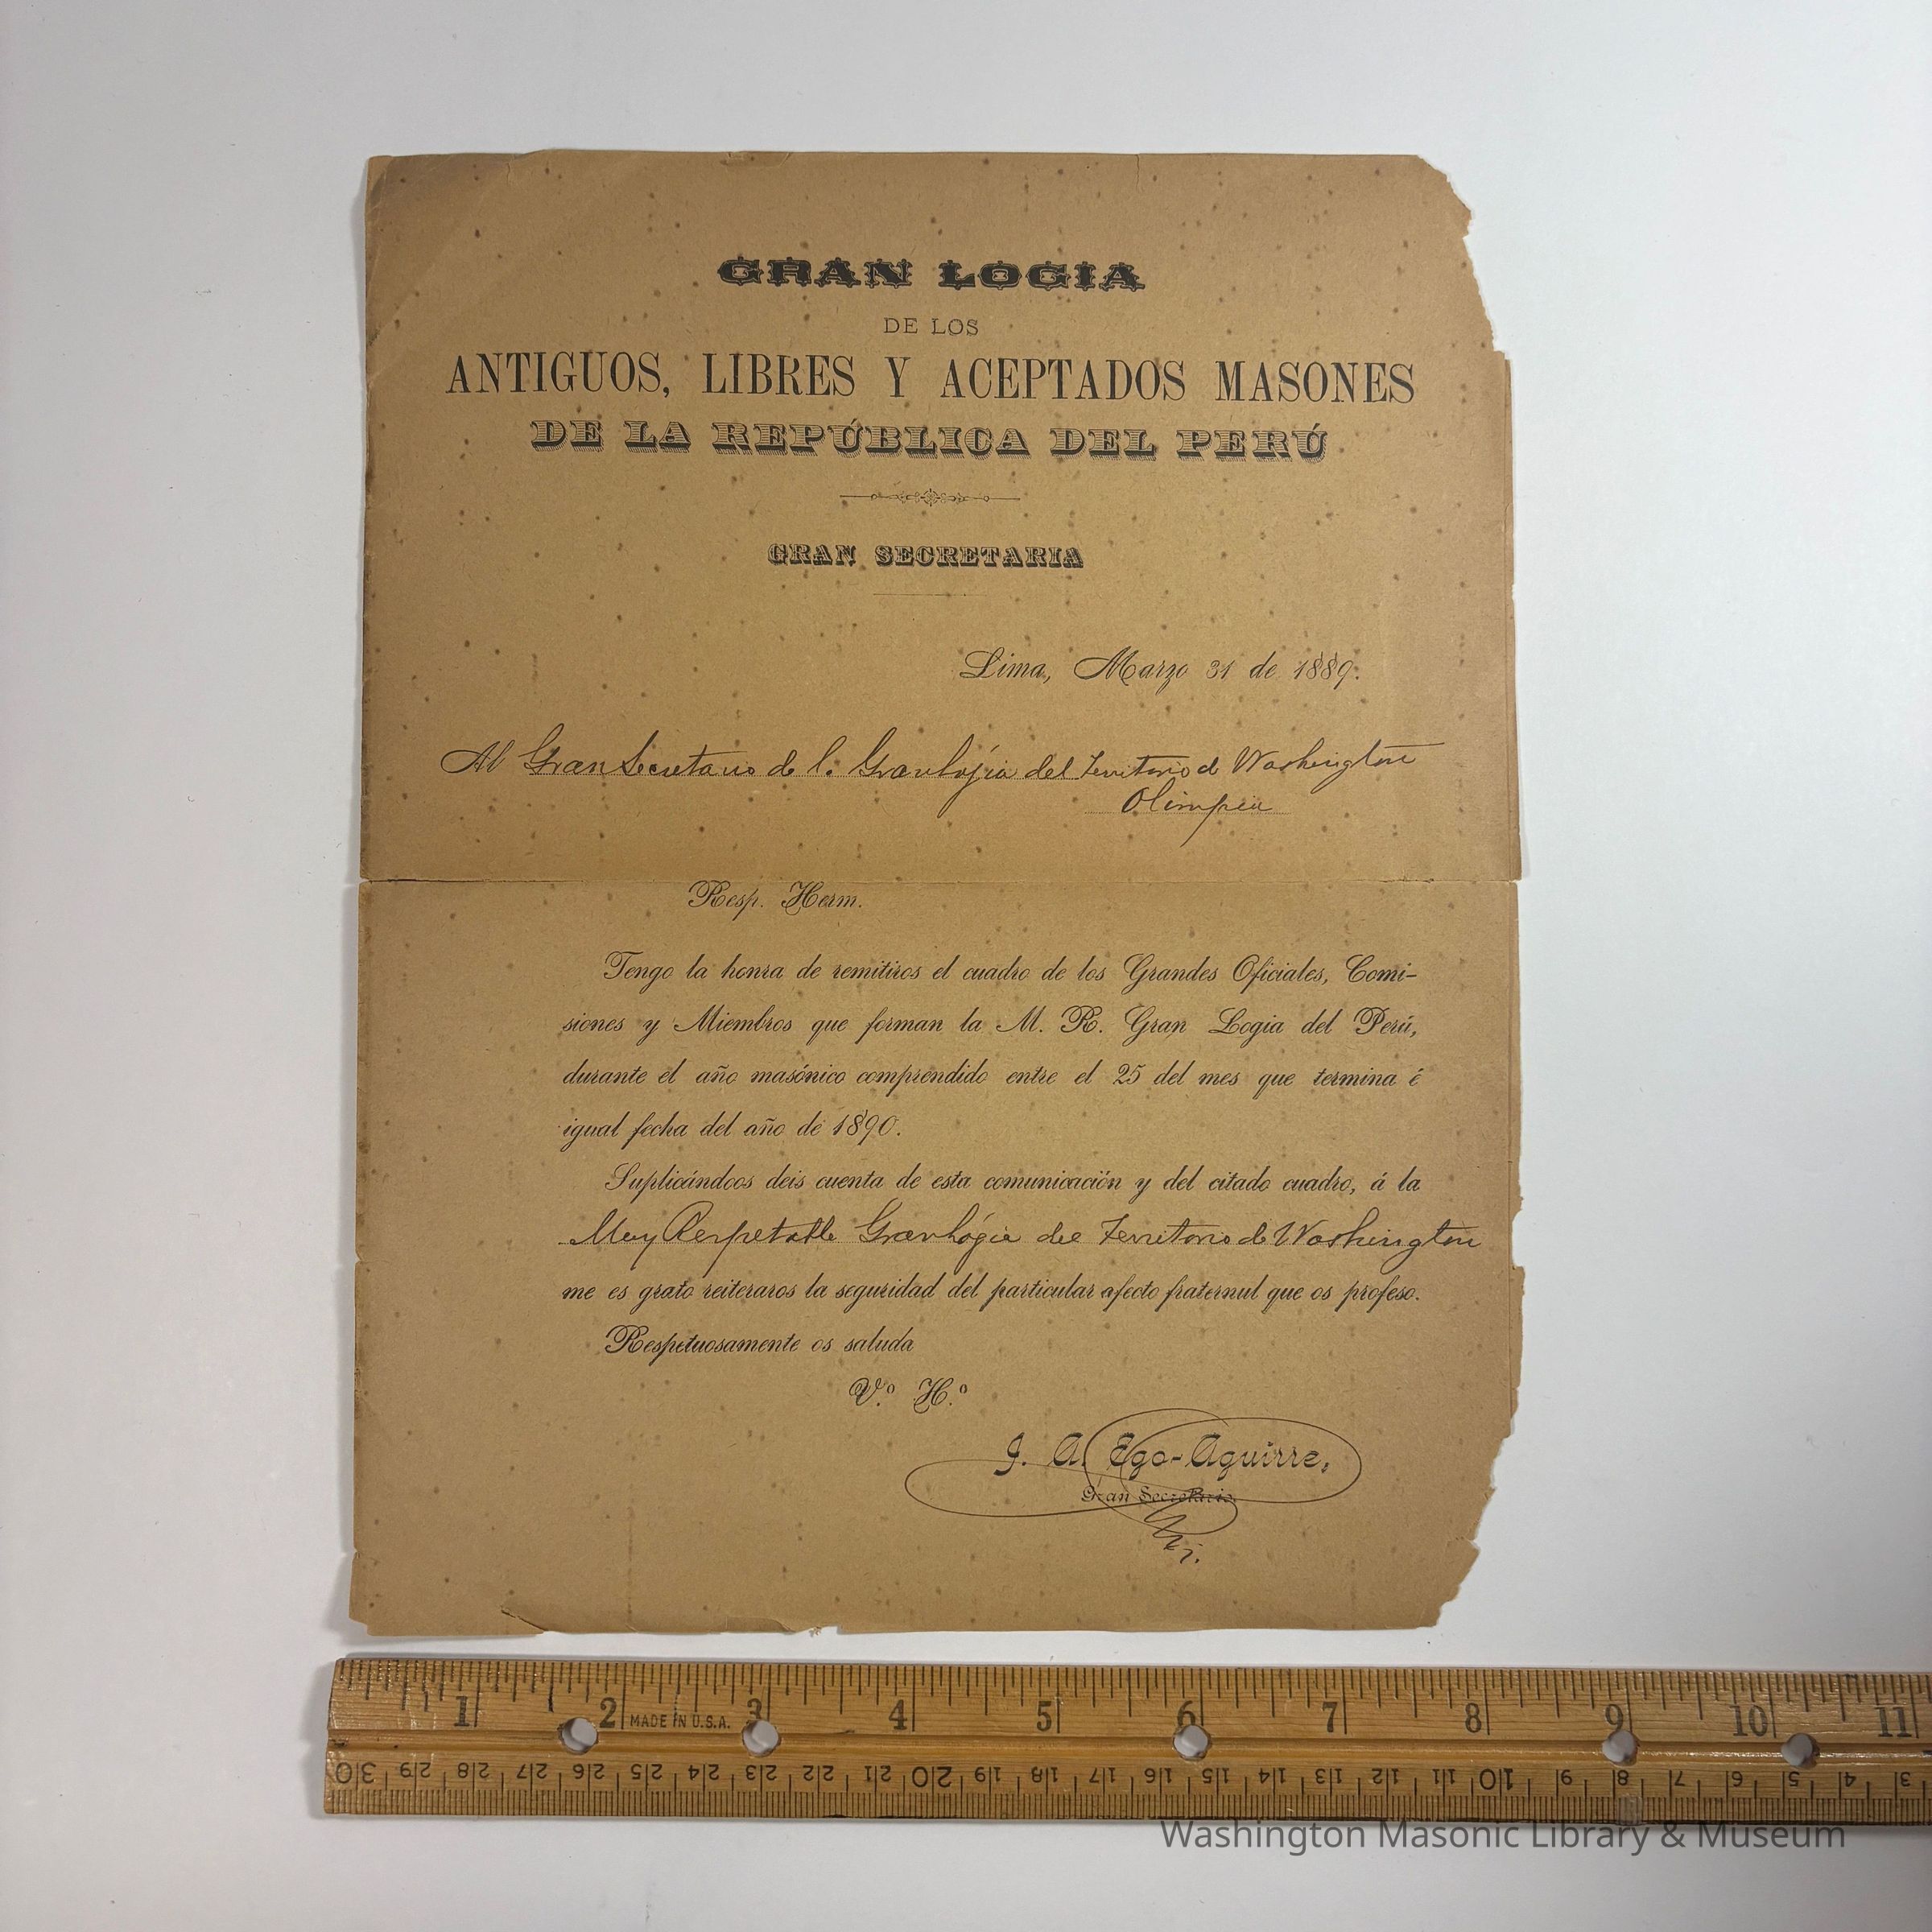 GRAN LOGIA
DE LOS
ANTIGUOS, LIBRES Y ACEPTADOS MASONES
DE LA REPÚBLICA DEL PERÚ
GRAN SECRETARIA
Lima, Marzo 31 de 1889.
Al Gran Secretario de l. Gran Lógia del Territorio d Washington
Olimpia
Resp. Herm.
Tengo la honra de remitiros el cuadro de los Grandes Oficiales, Comi-
siones y Miembros que forman la M. R. Gran Logia del Perú,
durante el año masónico comprendido entre el 25 del mes que termina é
igual fecha del año de 1890.
Suplicándoos deis cuenta de esta comunicación y del citado cuadro, á la
Muy Respetable Gran Lógia del Territorio de Washington
me es grato reiteraros la seguridad del particular afecto fraternal que os profeso.
Respetuosamente os saluda
V.º H.º
J. A. Ego-Aguirre,
Gran Secretario
1 2 3 4 5 6 7 8 9 10 11
MADE IN U.S.A.
30 29 28 27 26 25 24 23 22 21 20 19 18 17 16 15 14 13 12 11 10 9 8 7 6 5 4 3
Washington Masonic Library & Museum